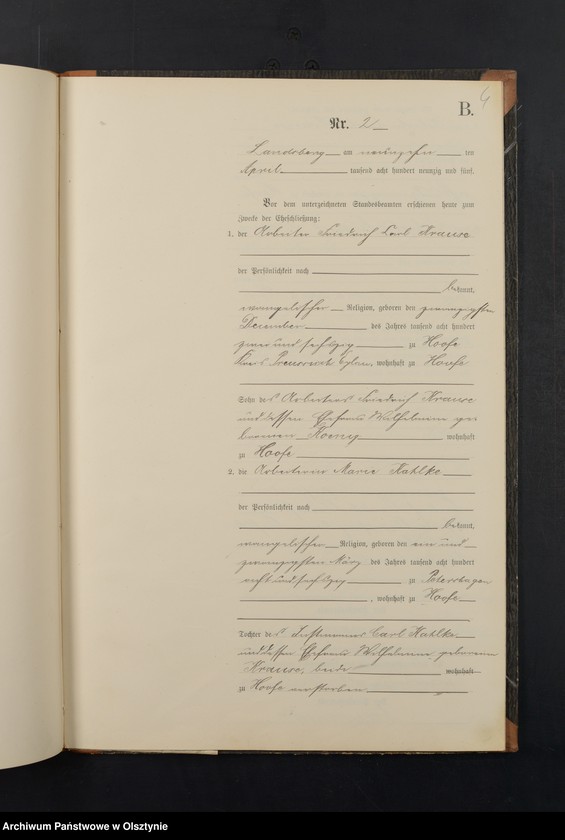 B.
4
Nr. 2
Landsberg am neunzehn ten
April tausend acht hundert neunzig und fünf.
Vor dem unterzeichneten Standesbeamten erschienen heute zum
Zwecke der Eheschließung:
1. der Arbeiter Friedrich Carl Krause
der Persönlichkeit nach
bekannt,
evangelischer Religion, geboren den zwanzigsten
December des Jahres tausend acht hundert
zwei und sechszig zu Hoofe
Kreis Preussisch Eylau, wohnhaft zu Hoofe
Sohn des Arbeiters Friedrich Krause
und dessen Ehefrau Wilhelmine ge-
borenen wohnhaft
zu Hoofe
2. die Arbeiterin Marie Kahlke
der Persönlichkeit nach
bekannt,
evangelischer Religion, geboren den ein und
zwanzigsten März des Jahres tausend acht hundert
acht und sechszig zu
, wohnhaft zu Hoofe
Tochter des Instmannes Carl Kahlke
und dessen Ehefrau Wilhelmine geborenen
Krause, beide wohnhaft
zu Hoofe verstorben
Archiwum Państwowe w Olsztynie